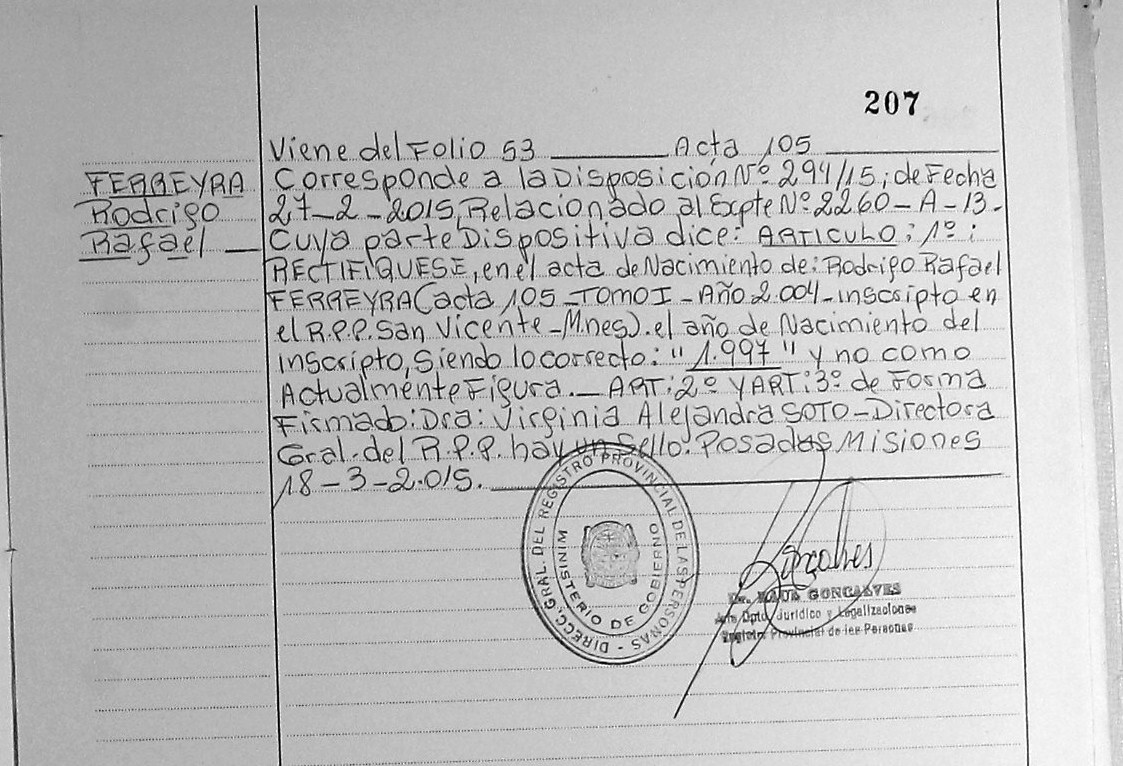 207
Viene del Folio 53 Acta 105
FERREYRA
Rodrigo
Rafael
Corresponde a la Disposición Nº 294/15; de Fecha
27-2-2015, Relacionado al Expte Nº 2260-A-13-
Cuya parte Dispositiva dice: ARTICULO: 1º:
RECTIFIQUESE, en el acta de Nacimiento de: Rodrigo Rafael
FERREYRA (acta 105-TOMO I-Año 2.004-inscripto en
el R.P.P. San Vicente-Mnes). el año de Nacimiento del
inscripto, siendo lo correcto: "1.997" y no como
Actualmente Figura.- ART: 2º Y ART: 3º de Forma
Firmado: Dra: Virginia Alejandra SOTO-Directora
Gral. del R.P.P. hay un sello. Posadas Misiones
18-3-2.015.
DIRECC. GRAL. DEL REGISTRO PROVINCIAL DE LAS PERSONAS -
MINISTERIO DE GOBIERNO
Gonçalves
Dr. RAUL GONCALVES
Dpto. Jurídico y Legalizaciones
Registro Provincial de las Personas